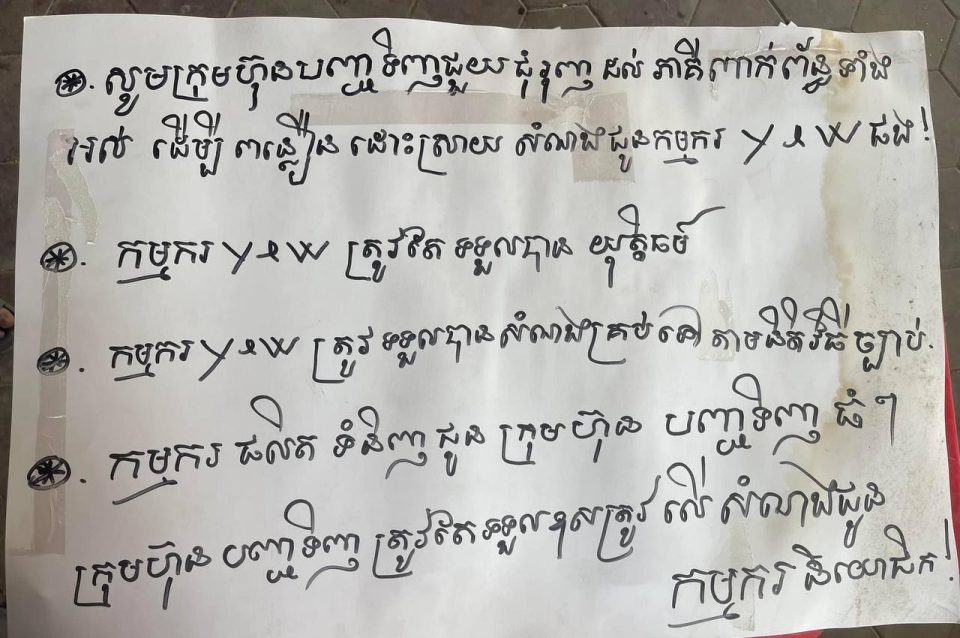 ⊛. សូមក្រុមហ៊ុនបញ្ជាទិញជួយជុំរុញ ដល់ ភាគីពាក់ព័ន្ធទាំង
អស់ ដើម្បី ពន្លឿន ដោះស្រាយ សំណងជូនកម្មករ Y & W ផង!
⊛. កម្មករ Y & W ត្រូវតែ ទទួលបាន យុត្តិធម៌
⊛. កម្មករ Y & W ត្រូវ ទទួលបានសំណងគ្រប់ទៅ តាមនិតិវិធីច្បាប់.
⊛. កម្មករ ផលិត ទំនិញ ជូន ក្រុមហ៊ុន បញ្ជាទិញ ធំៗ
ក្រុមហ៊ុន បញ្ជាទិញ ត្រូវតែទទួលខុសត្រូវ លើ សំណងជូន
កម្មករ និយោជិត!